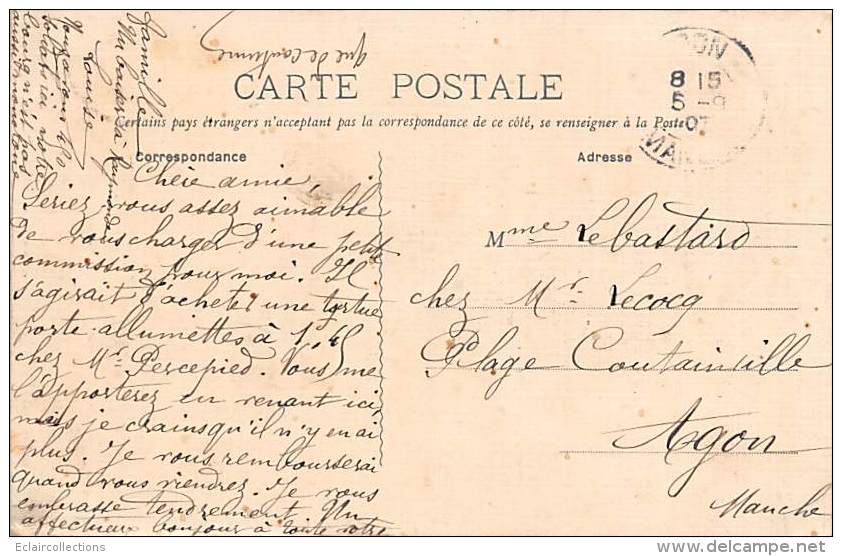 que de coutume
CARTE POSTALE
Certains pays étrangers n'acceptant pas la correspondance de ce côté, se renseigner à la Poste
Correspondance
Adresse
Chère amie,
Seriez vous assez aimable
de vous charger d'une petite
commission pour moi. Il
s'agirait d'acheter une tortue
porte-allumettes à 1,45
chez Mr. Percepied. Vous me
l'apporterez en venant ici,
mais je crains qu'il n'y en ai
plus. Je vous rembourserai
quand vous viendrez. Je vous
embrasse tendrement. Un
affectueux bonjour à toute votre
famille
Un baiser à Raymonde
Louise
votre
bourg n'est pas
aussi
Mme Lebastard
chez Mr. Lecocq
Plage Coutainville
Agon
Manche
ON
8 15
5 -9
07
MAN
Eclaircollections
delcampe.net